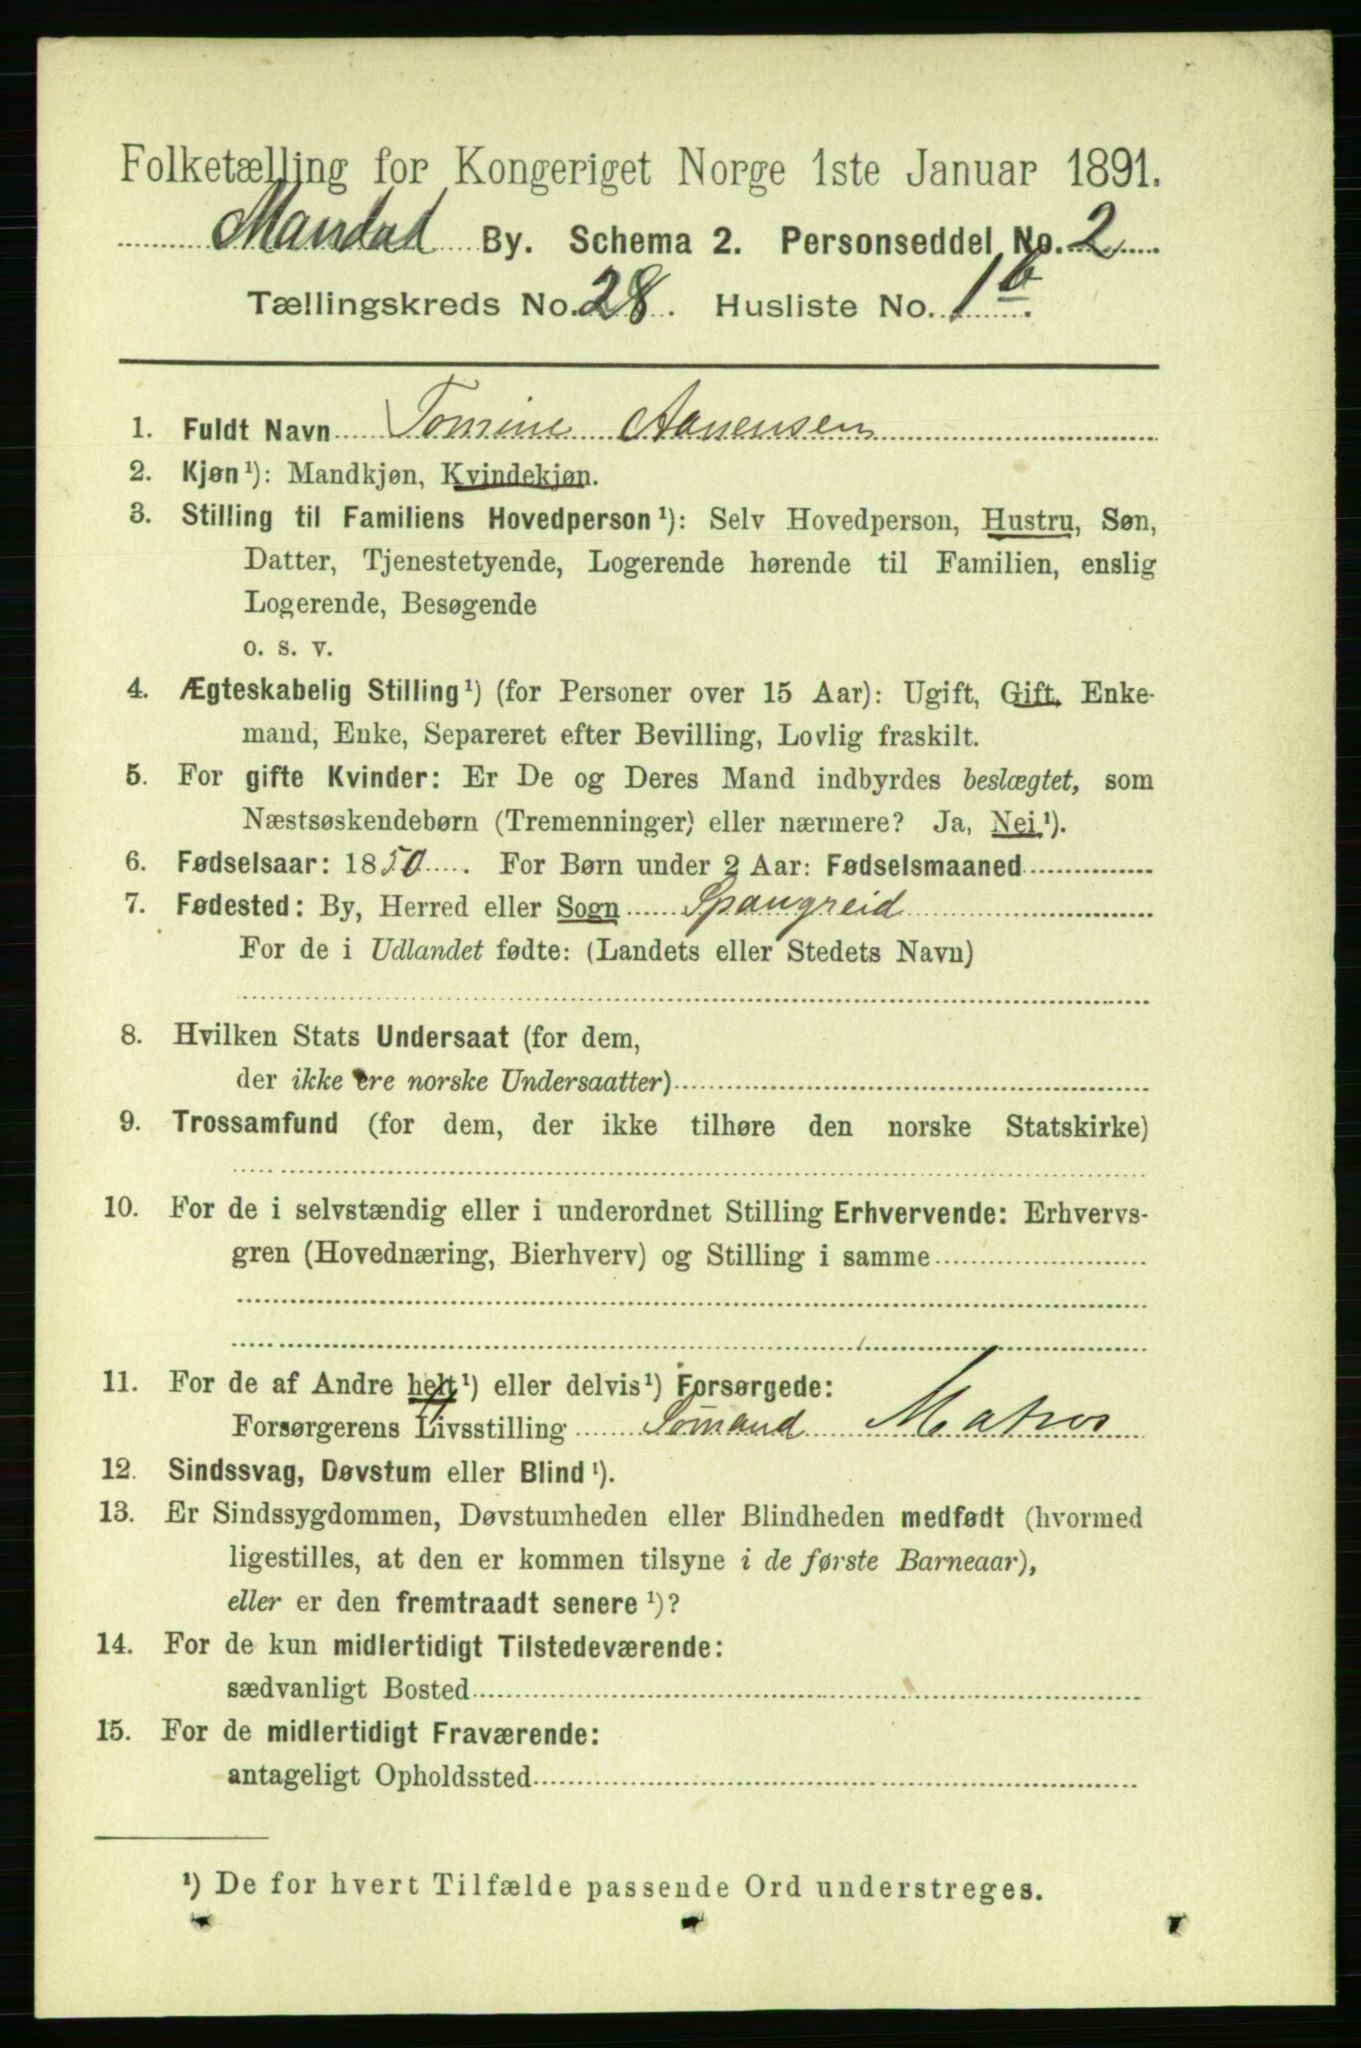 Folketælling for Kongeriget Norge 1ste Januar 1891.
Mandal By. Schema 2. Personseddel No. 2
Tællingskreds No. 28. Husliste No. 1 b.
1. Fuldt Navn Tomine Aanensen
2. Kjøn¹): Mandkjøn, Kvindekjøn.
3. Stilling til Familiens Hovedperson¹): Selv Hovedperson, Hustru, Søn,
Datter, Tjenestetyende, Logerende hørende til Familien, enslig
Logerende, Besøgende
o. s. v.
4. Ægteskabelig Stilling¹) (for Personer over 15 Aar): Ugift, Gift, Enke-
mand, Enke, Separeret efter Bevilling, Lovlig fraskilt.
5. For gifte Kvinder: Er De og Deres Mand indbyrdes beslægtet, som
Næstsøskendebørn (Tremenninger) eller nærmere? Ja, Nei¹).
6. Fødselsaar: 1850. For Børn under 2 Aar: Fødselsmaaned
7. Fødested: By, Herred eller Sogn Spangreid
For de i Udlandet fødte: (Landets eller Stedets Navn)
8. Hvilken Stats Undersaat (for dem,
der ikke ere norske Undersaatter)
9. Trossamfund (for dem, der ikke tilhøre den norske Statskirke)
10. For de i selvstændig eller i underordnet Stilling Erhvervende: Erhvervs-
gren (Hovednæring, Bierhverv) og Stilling i samme
11. For de af Andre helt¹) eller delvis¹) Forsørgede:
Forsørgerens Livsstilling Sømand Matros
12. Sindssvag, Døvstum eller Blind¹).
13. Er Sindssygdommen, Døvstumheden eller Blindheden medfødt (hvormed
ligestilles, at den er kommen tilsyne i de første Barneaar),
eller er den fremtraadt senere¹)?
14. For de kun midlertidigt Tilstedeværende:
sædvanligt Bosted
15. For de midlertidigt Fraværende:
antageligt Opholdssted
¹) De for hvert Tilfælde passende Ord understreges.